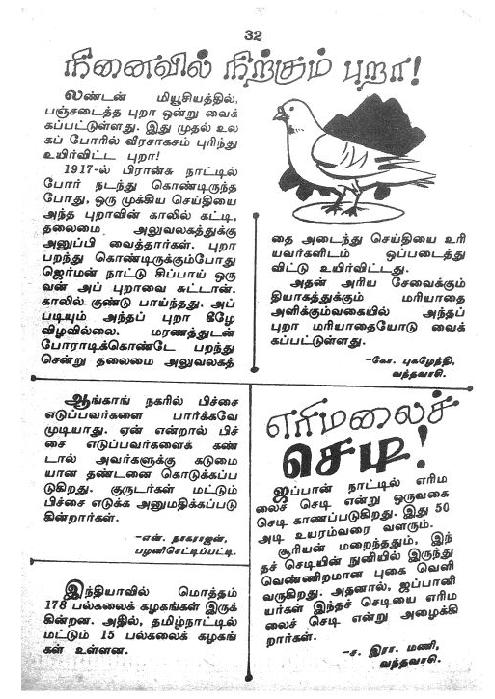 32
நினைவில் நிற்கும் புறா!
லண்டன் மியூசியத்தில்,
பஞ்சடைத்த புறா ஒன்று வைக்
கப்பட்டுள்ளது. இது முதல் உல
கப் போரில் வீரசாகசம் புரிந்து
உயிர்விட்ட புறா!
1917-ல் பிரான்சு நாட்டில்
போர் நடந்து கொண்டிருந்த
போது, ஒரு முக்கிய செய்தியை
அந்த புறாவின் காலில் கட்டி,
தலைமை அலுவலகத்துக்கு
அனுப்பி வைத்தார்கள். புறா
பறந்து கொண்டிருக்கும்போது
ஜெர்மன் நாட்டு சிப்பாய் ஒரு
வன் அப் புறாவை சுட்டான்.
காலில் குண்டு பாய்ந்தது. அப்
படியும் அந்தப் புறா கீழே
விழவில்லை. மரணத்துடன்
போராடிக்கொண்டே பறந்து
சென்று தலைமை அலுவலகத்
தை அடைந்து செய்தியை உரி
யவர்களிடம் ஒப்படைத்து
விட்டு உயிர்விட்டது.
அதன் அரிய சேவைக்கும்
தியாகத்துக்கும் மரியாதை
அளிக்கும்வகையில் அந்தப்
புறா மரியாதையோடு வைக்
கப்பட்டுள்ளது.
-கோ. புகழேந்தி,
வந்தவாசி.
ஆங்காங் நகரில் பிச்சை
எடுப்பவர்களை பார்க்கவே
முடியாது. ஏன் என்றால் பிச்
சை எடுப்பவர்களைக் கண்
டால் அவர்களுக்கு கடுமை
யான தண்டனை கொடுக்கப்ப
டுகிறது. குருடர்கள் மட்டும்
பிச்சை எடுக்க அனுமதிக்கப்படு
கின்றார்கள்.
-என். நாகராஜன்,
பழனிசெட்டிப்பட்டி.
இந்தியாவில் மொத்தம்
178 பல்கலைக் கழகங்கள் இருக்
கின்றன. அதில், தமிழ்நாட்டில்
மட்டும் 15 பல்கலைக் கழகங்
கள் உள்ளன.
எரிமலைச்
செடி!
ஜப்பான் நாட்டில் எரிம
லைச் செடி என்று ஒருவகை
செடி காணப்படுகிறது. இது 50
அடி உயரம்வரை வளரும்.
சூரியன் மறைந்ததும், இந்
தச் செடியின் நுனியில் இருந்து
வெண்ணிறமான புகை வெளி
வருகிறது. அதனால், ஜப்பானி
யர்கள் இந்தச் செடியை எரிம
லைச் செடி என்று அழைக்கி
றார்கள்.
-ச. இரா. மணி,
வந்தவாசி.